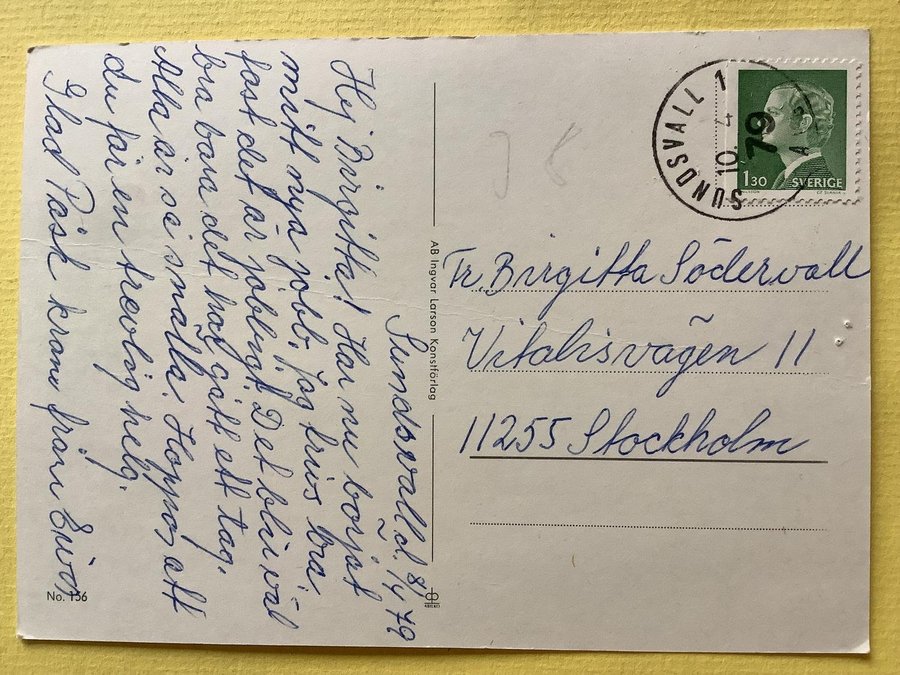 Sundsvall d. 8/4 79
Hej Birgitta! Har nu börjat
mitt nya jobb, jag trivs bra
fast det är jobbigt. Det blir väl
bra bara det har gått ett tag.
Alla är så snälla. Hoppas att
du får en trevlig helg.
Glad Påsk kram från
AB Ingvar Larson Konstförlag
No. 156
SUNDSVALL 1
10. 4
79
1.30 SVERIGE
Fr. Birgitta Södervall
Vitalisvägen 11
11255 Stockholm